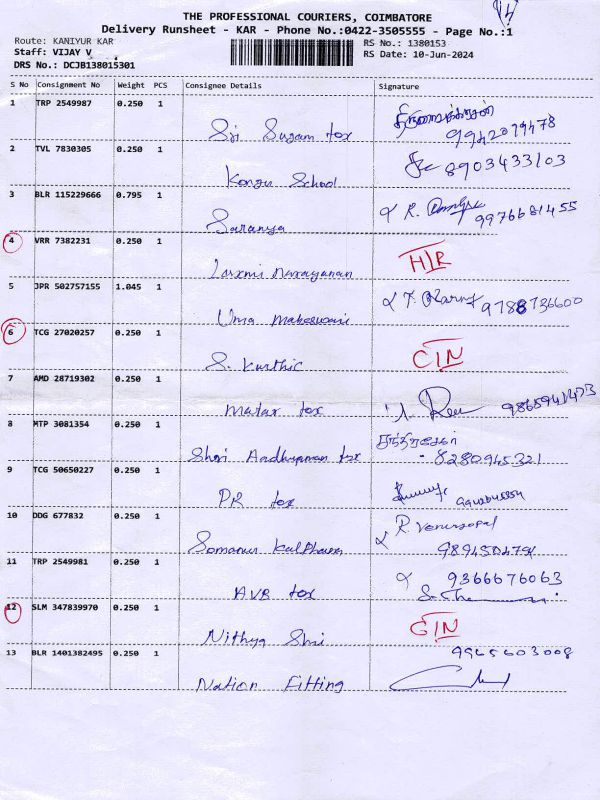 THE PROFESSIONAL COURIERS, COIMBATORE
Delivery Runsheet - KAR - Phone No.:0422-3505555 - Page No.:1
Route: KANIYUR KAR
RS No.: 1380153
Staff: VIJAY V
RS Date: 10-Jun-2024
DRS No.: DCJB138015301
S No Consignment No Weight PCS Consignee Details Signature
1 TRP 2549987 0.250 1
Sri Sugam tex 9942079478
2 TVL 7830305 0.250 1
8903433103
Kongu School
3 BLR 115229666 0.795 1
Saranya 9976681455
4 VRR 7382231 0.250 1
Laxmi Narayanan
5 JPR 502757155 1.045 1
9788736600
Uma Maheswari
6 TCG 27020257 0.250 1
S. Karthic
7 AMD 28719302 0.250 1
tex
8 MTP 3081354 0.250 1
Shri tex 8280945321
9 TCG 50650227 0.250 1
PR tex
10 DDG 677832 0.250 1
R. Venugopal
Somanur
11 TRP 2549981 0.250 1
9366676063
AVB tex
12 SLM 347839970 0.250 1
Nithya Shri
13 BLR 1401382495 0.250 1
Nation Fitting